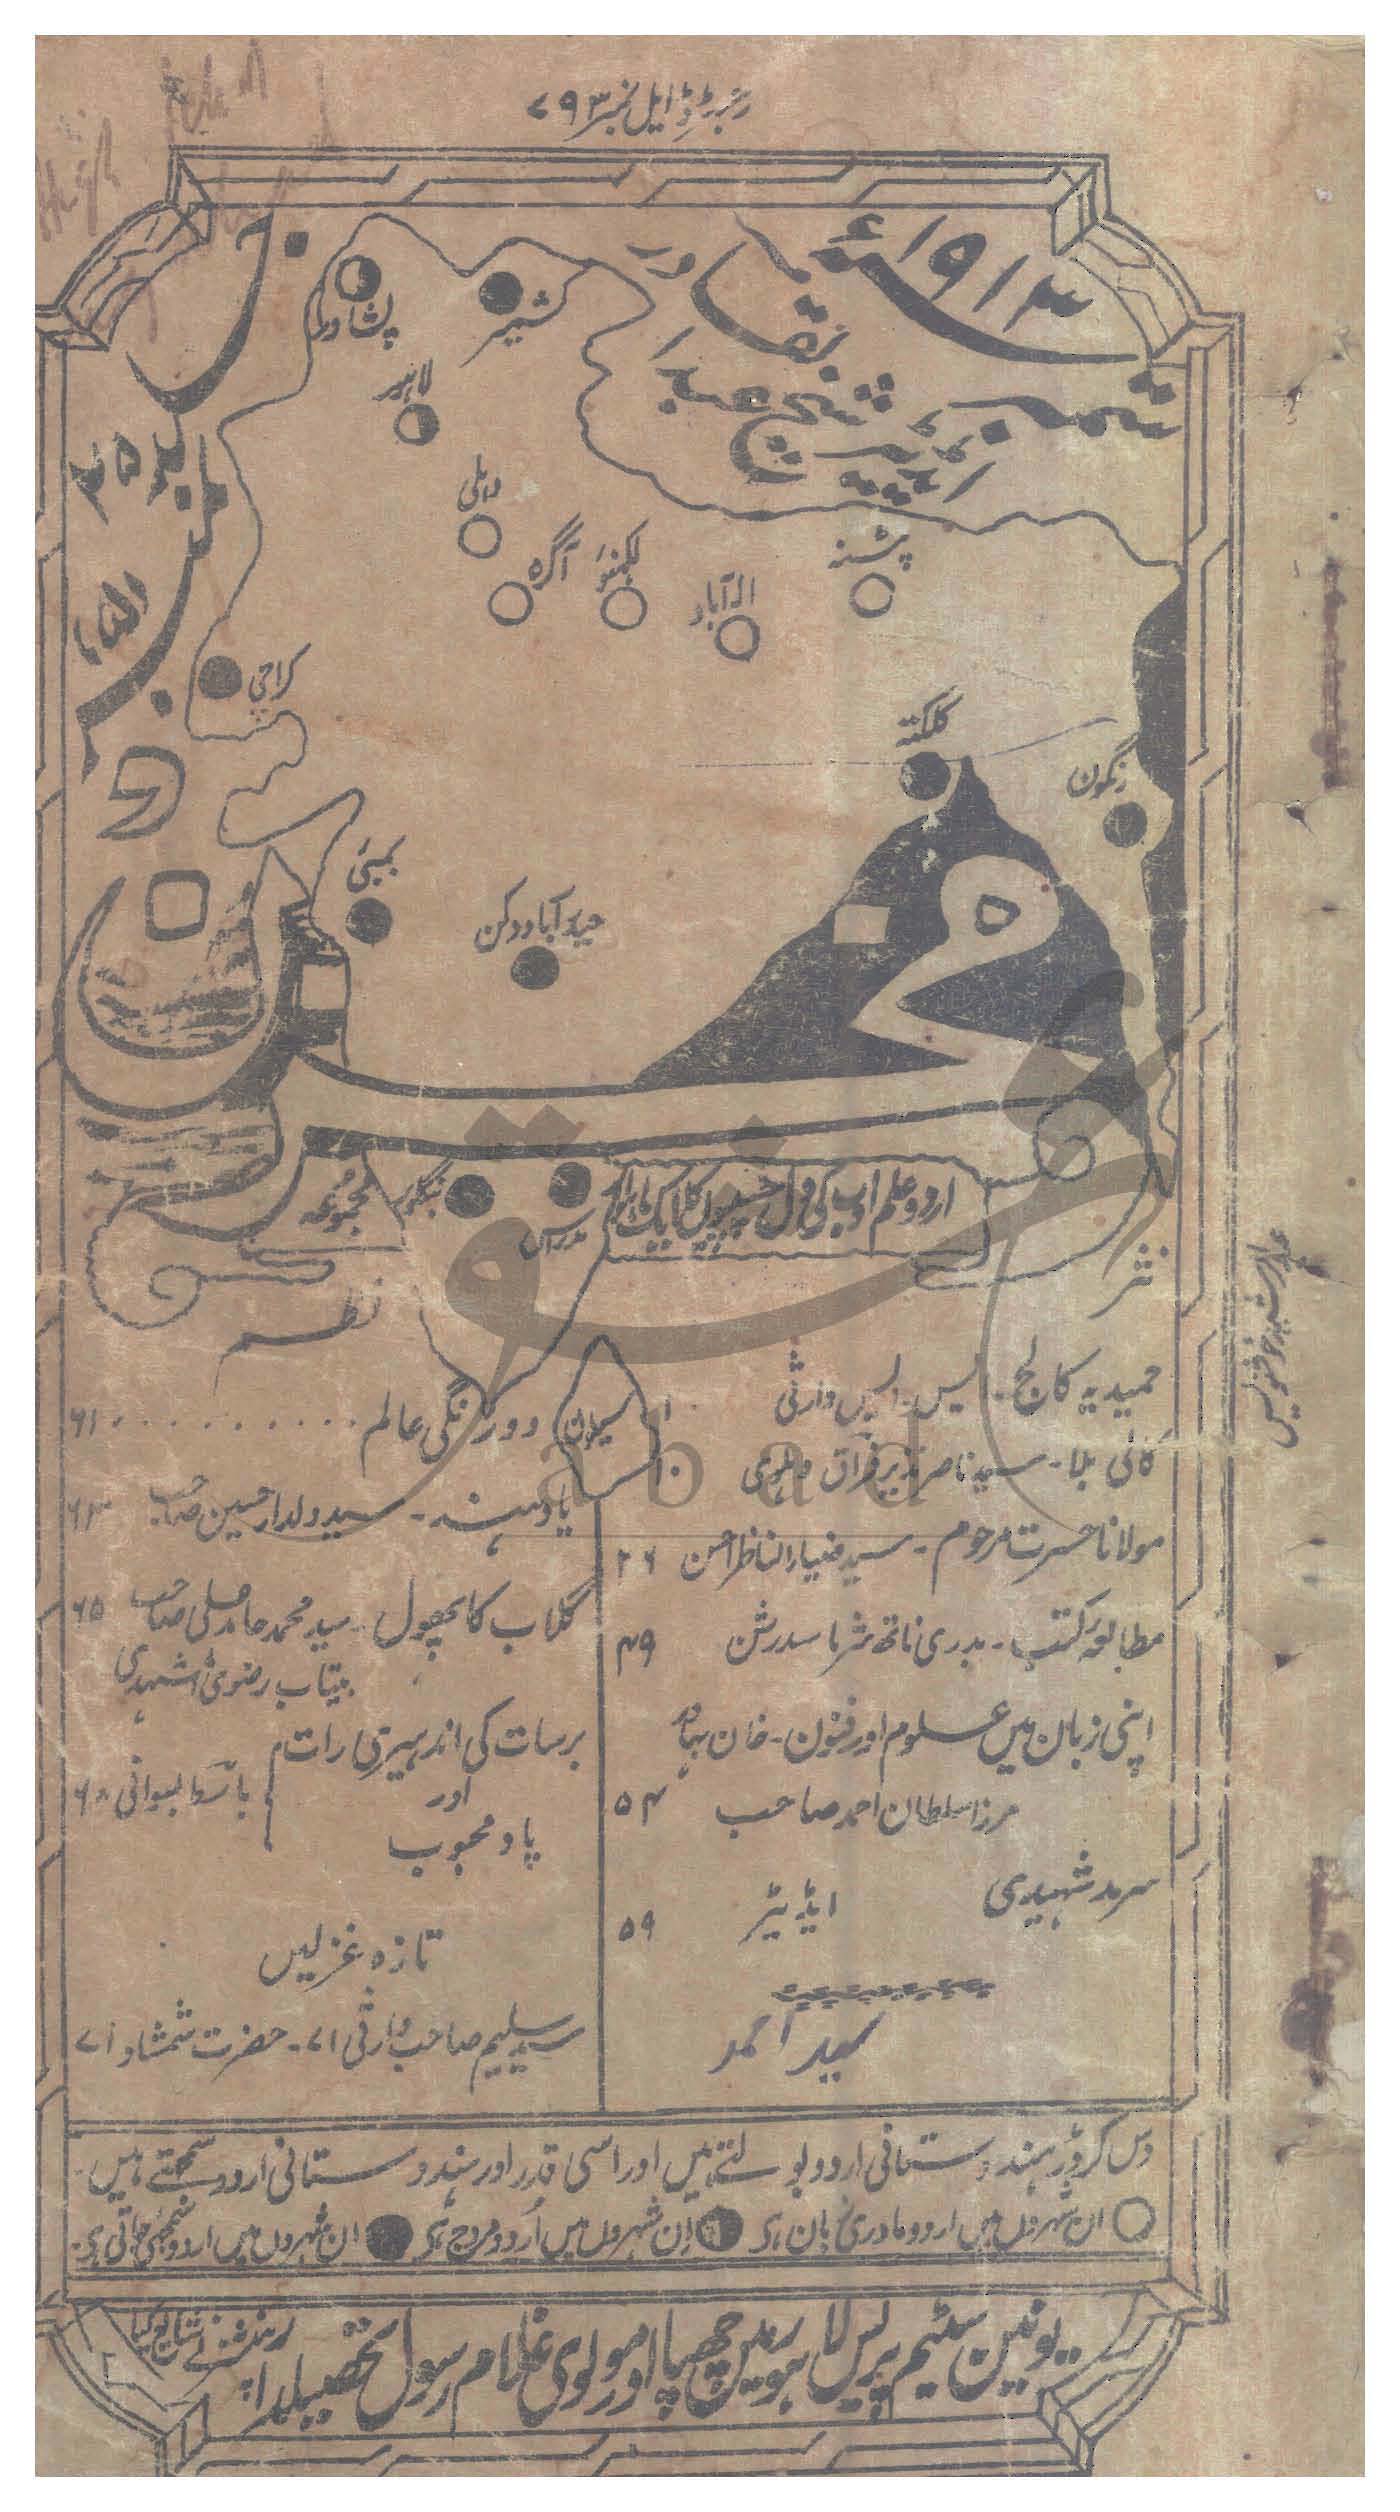 رجسٹرڈ ایل نمبر ۷۹۳
۱۹۱۳ء
ستمبر
ایڈیٹر شیخ عبدالقادر
جلد ۲۵
نمبر ۶
پشاور
کشمیر
لاہور
دہلی
آگرہ
لکھنؤ
الہ آباد
پٹنہ
کراچی
کلکتہ
رنگون
بمبئی
حیدرآباد دکن
مخزن
مدراس
بنگلور
اردو علم ادب کی دل چسپیوں کا ایک ماہوار
مجموعہ
سیلون
نثر
حمیدیہ کالج - ایس - ایس وارثی ۱
کالی بلا - سید ناصر نذیر فراق دہلوی ۱۰
مولانا حسرت مرحوم - سید ضیاء الناظر احسن ۲۶
مطالعہ کتب - بدری ناتھ شرما سدرشن ۴۹
اپنی زبان میں علوم اور فنون - خان بہادر
مرزا سلطان احمد صاحب ۵۴
سرمد شہیدی ایڈیٹر ۵۹
سید احمد
نظم
دو رنگی عالم .......... ۶۱
یاد ہند - سید ولدار حسین صاحب ۶۳
گلاب کا پھول - سید محمد حامد علی صاحب ۶۵
بیتاب رضوی اشہدی
برسات کی اندہیری رات
اور
یاد محبوب
باسط بسوانی ۶۸
تازہ غزلیں
سید سلیم صاحب وارثی ۷۱ - حضرت شمشاد ۷۱
دس کروڑ ہندوستانی اردو بولتے ہیں اور اسی قدر اور ہندوستانی اردو سمجھتے ہیں -
ان شہروں میں اردو مادری زبان ہی ان شہروں میں اُردو مروج ہی ان شہروں میں اردو سمجھی جاتی ہی -
یونین سٹیم پریس لاہور میں چھپا اور مولوی غلام رسول تحصیلدار
پرنٹر نے شایع کیا
عبدالرشید خوشنویس